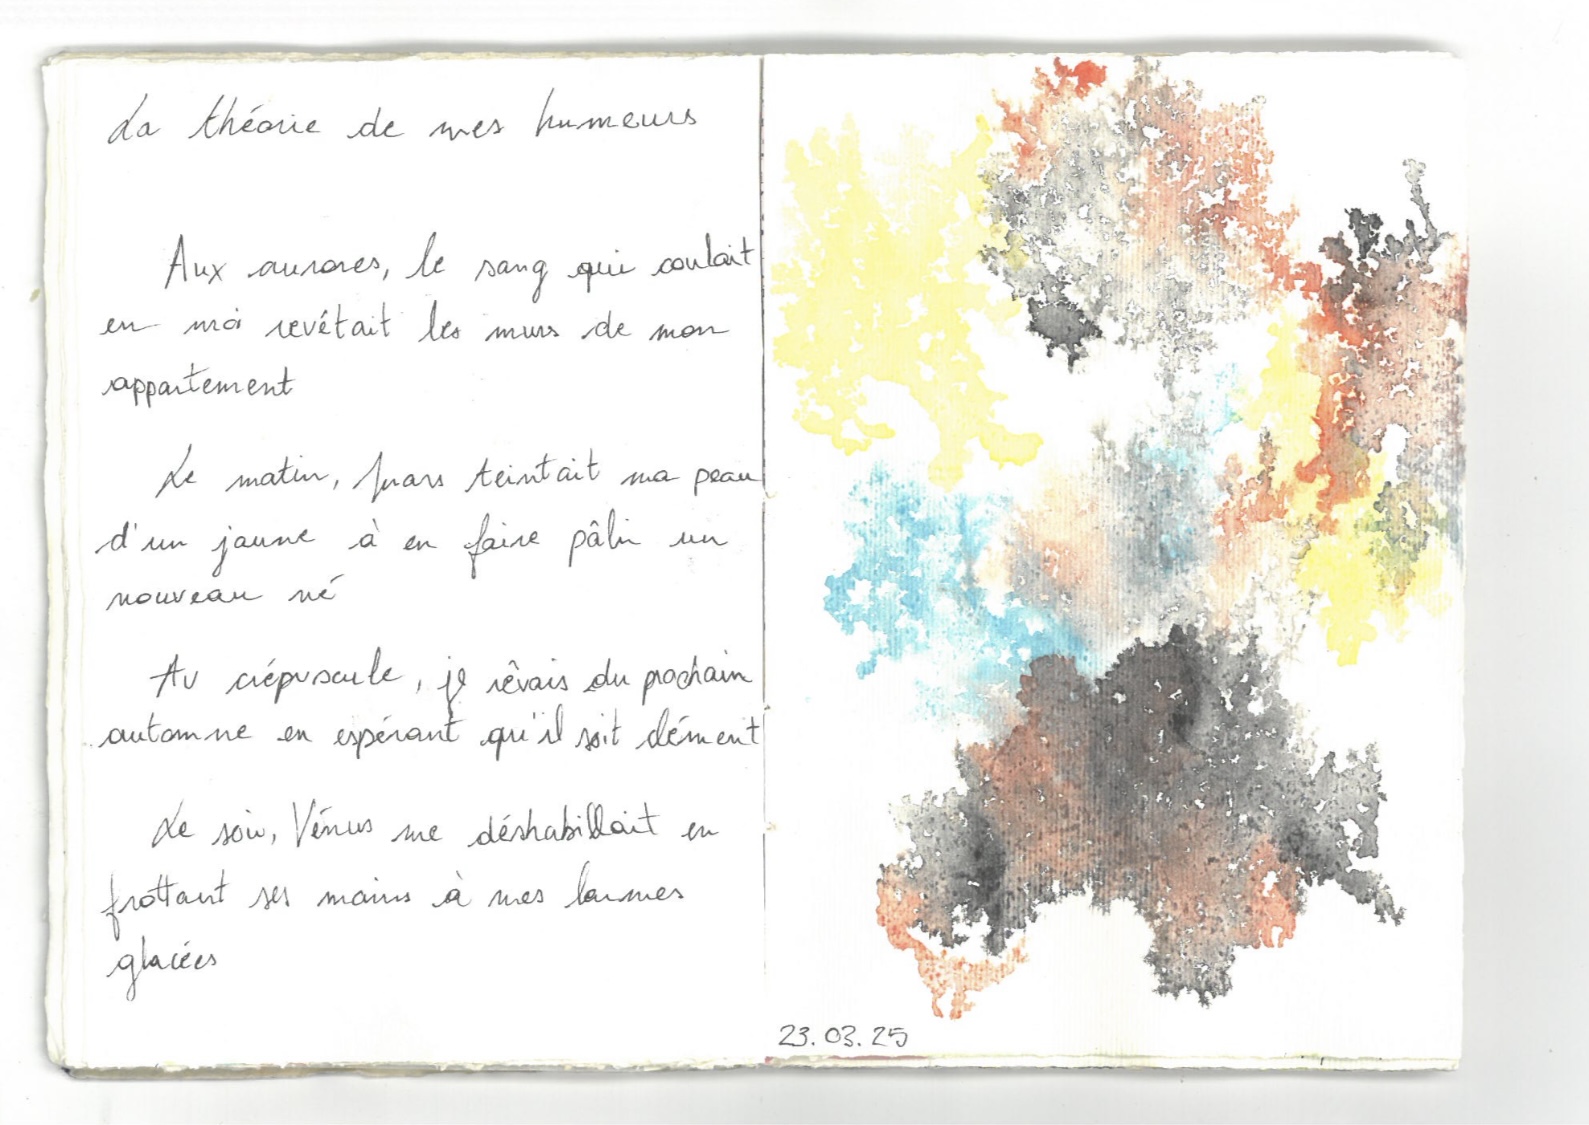 La théorie de mes humeurs
Aux aurores, le sang qui coulait
en moi revêtait les murs de mon
appartement
Le matin, Mars teintait ma peau
d'un jaune à en faire pâlir un
nouveau né
Au crépuscule, je rêvais du prochain
automne en espérant qu'il soit clément
Le soir, Vénus me déshabillait en
frottant ses mains à mes larmes
glacées
23.03.25